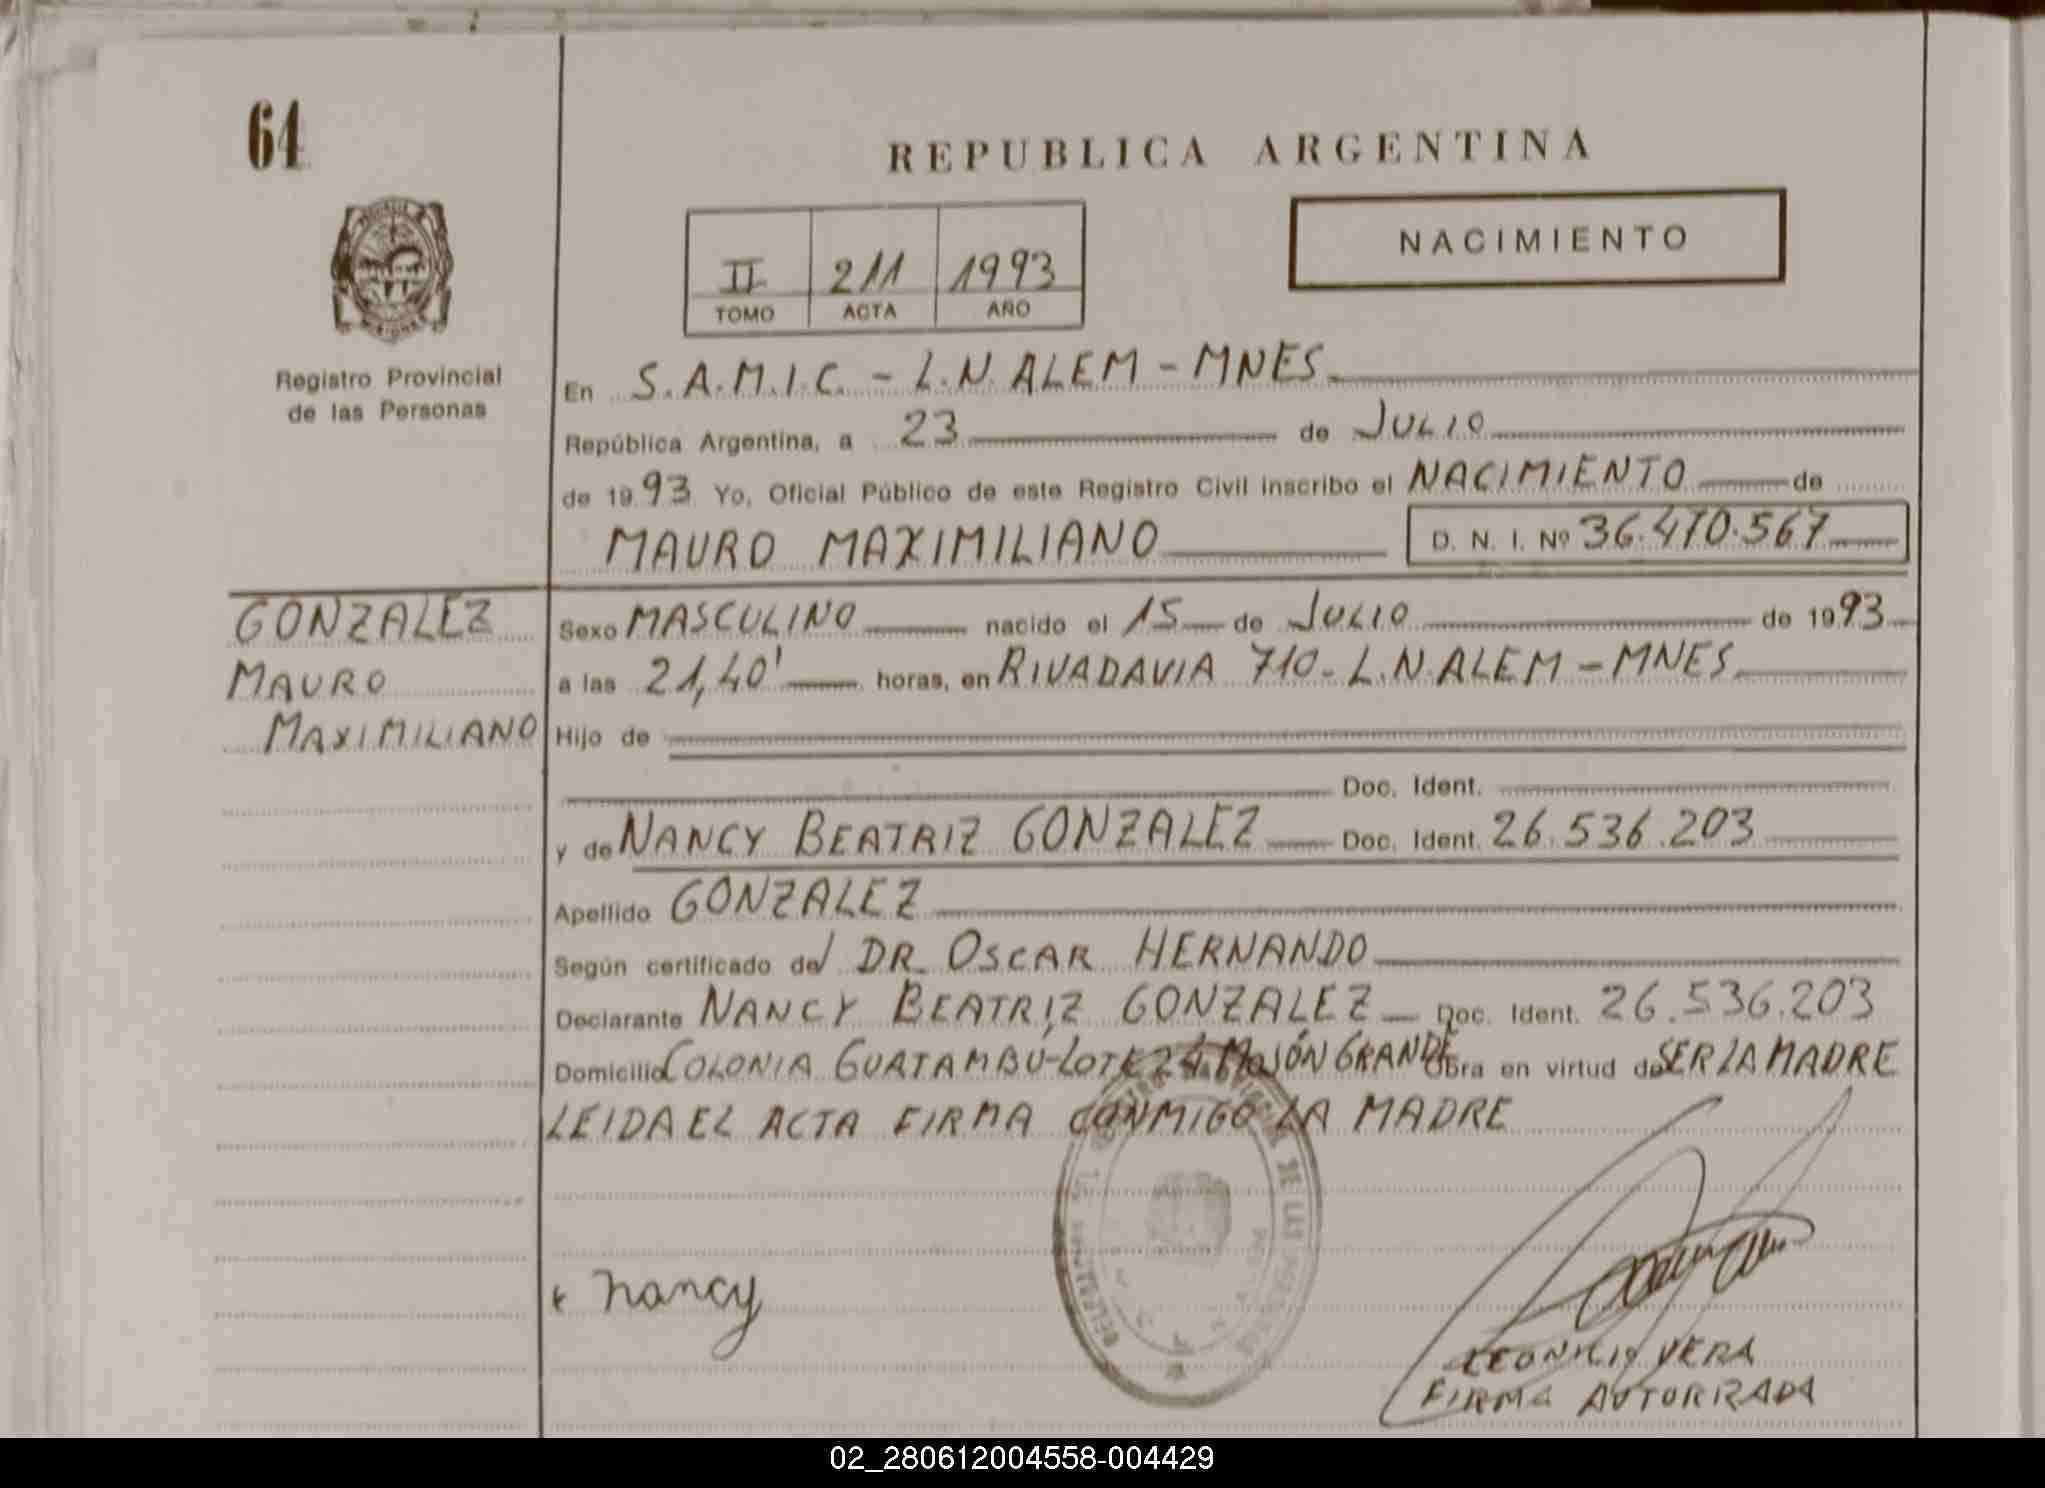 64
REPUBLICA ARGENTINA
NACIMIENTO
II 211 1993
TOMO ACTA AÑO
Registro Provincial
de las Personas
En S.A.M.I.C. - L.N. ALEM - MNES
República Argentina, a 23 de JULIO
de 1993 Yo, Oficial Público de este Registro Civil inscribo el NACIMIENTO de
MAURO MAXIMILIANO D. N. I. Nº 36.470.567
GONZALEZ
MAURO
MAXIMILIANO
Sexo MASCULINO nacido el 15 de JULIO de 1993
a las 21,40' horas, en RIVADAVIA 710 - L.N. ALEM - MNES
Hijo de
Doc. Ident.
y de NANCY BEATRIZ GONZALEZ Doc. Ident. 26.536.203
Apellido GONZALEZ
Según certificado del DR OSCAR HERNANDO
Declarante NANCY BEATRIZ GONZALEZ Doc. Ident. 26.536.203
Domicilio COLONIA GUATAMBU-LOTE 24 MOJÓN GRANDE Obra en virtud de SER LA MADRE
LEIDA EL ACTA FIRMA CONMIGO LA MADRE
nancy
VERA
FIRMA AUTORIZADA
02_280612004558-004429